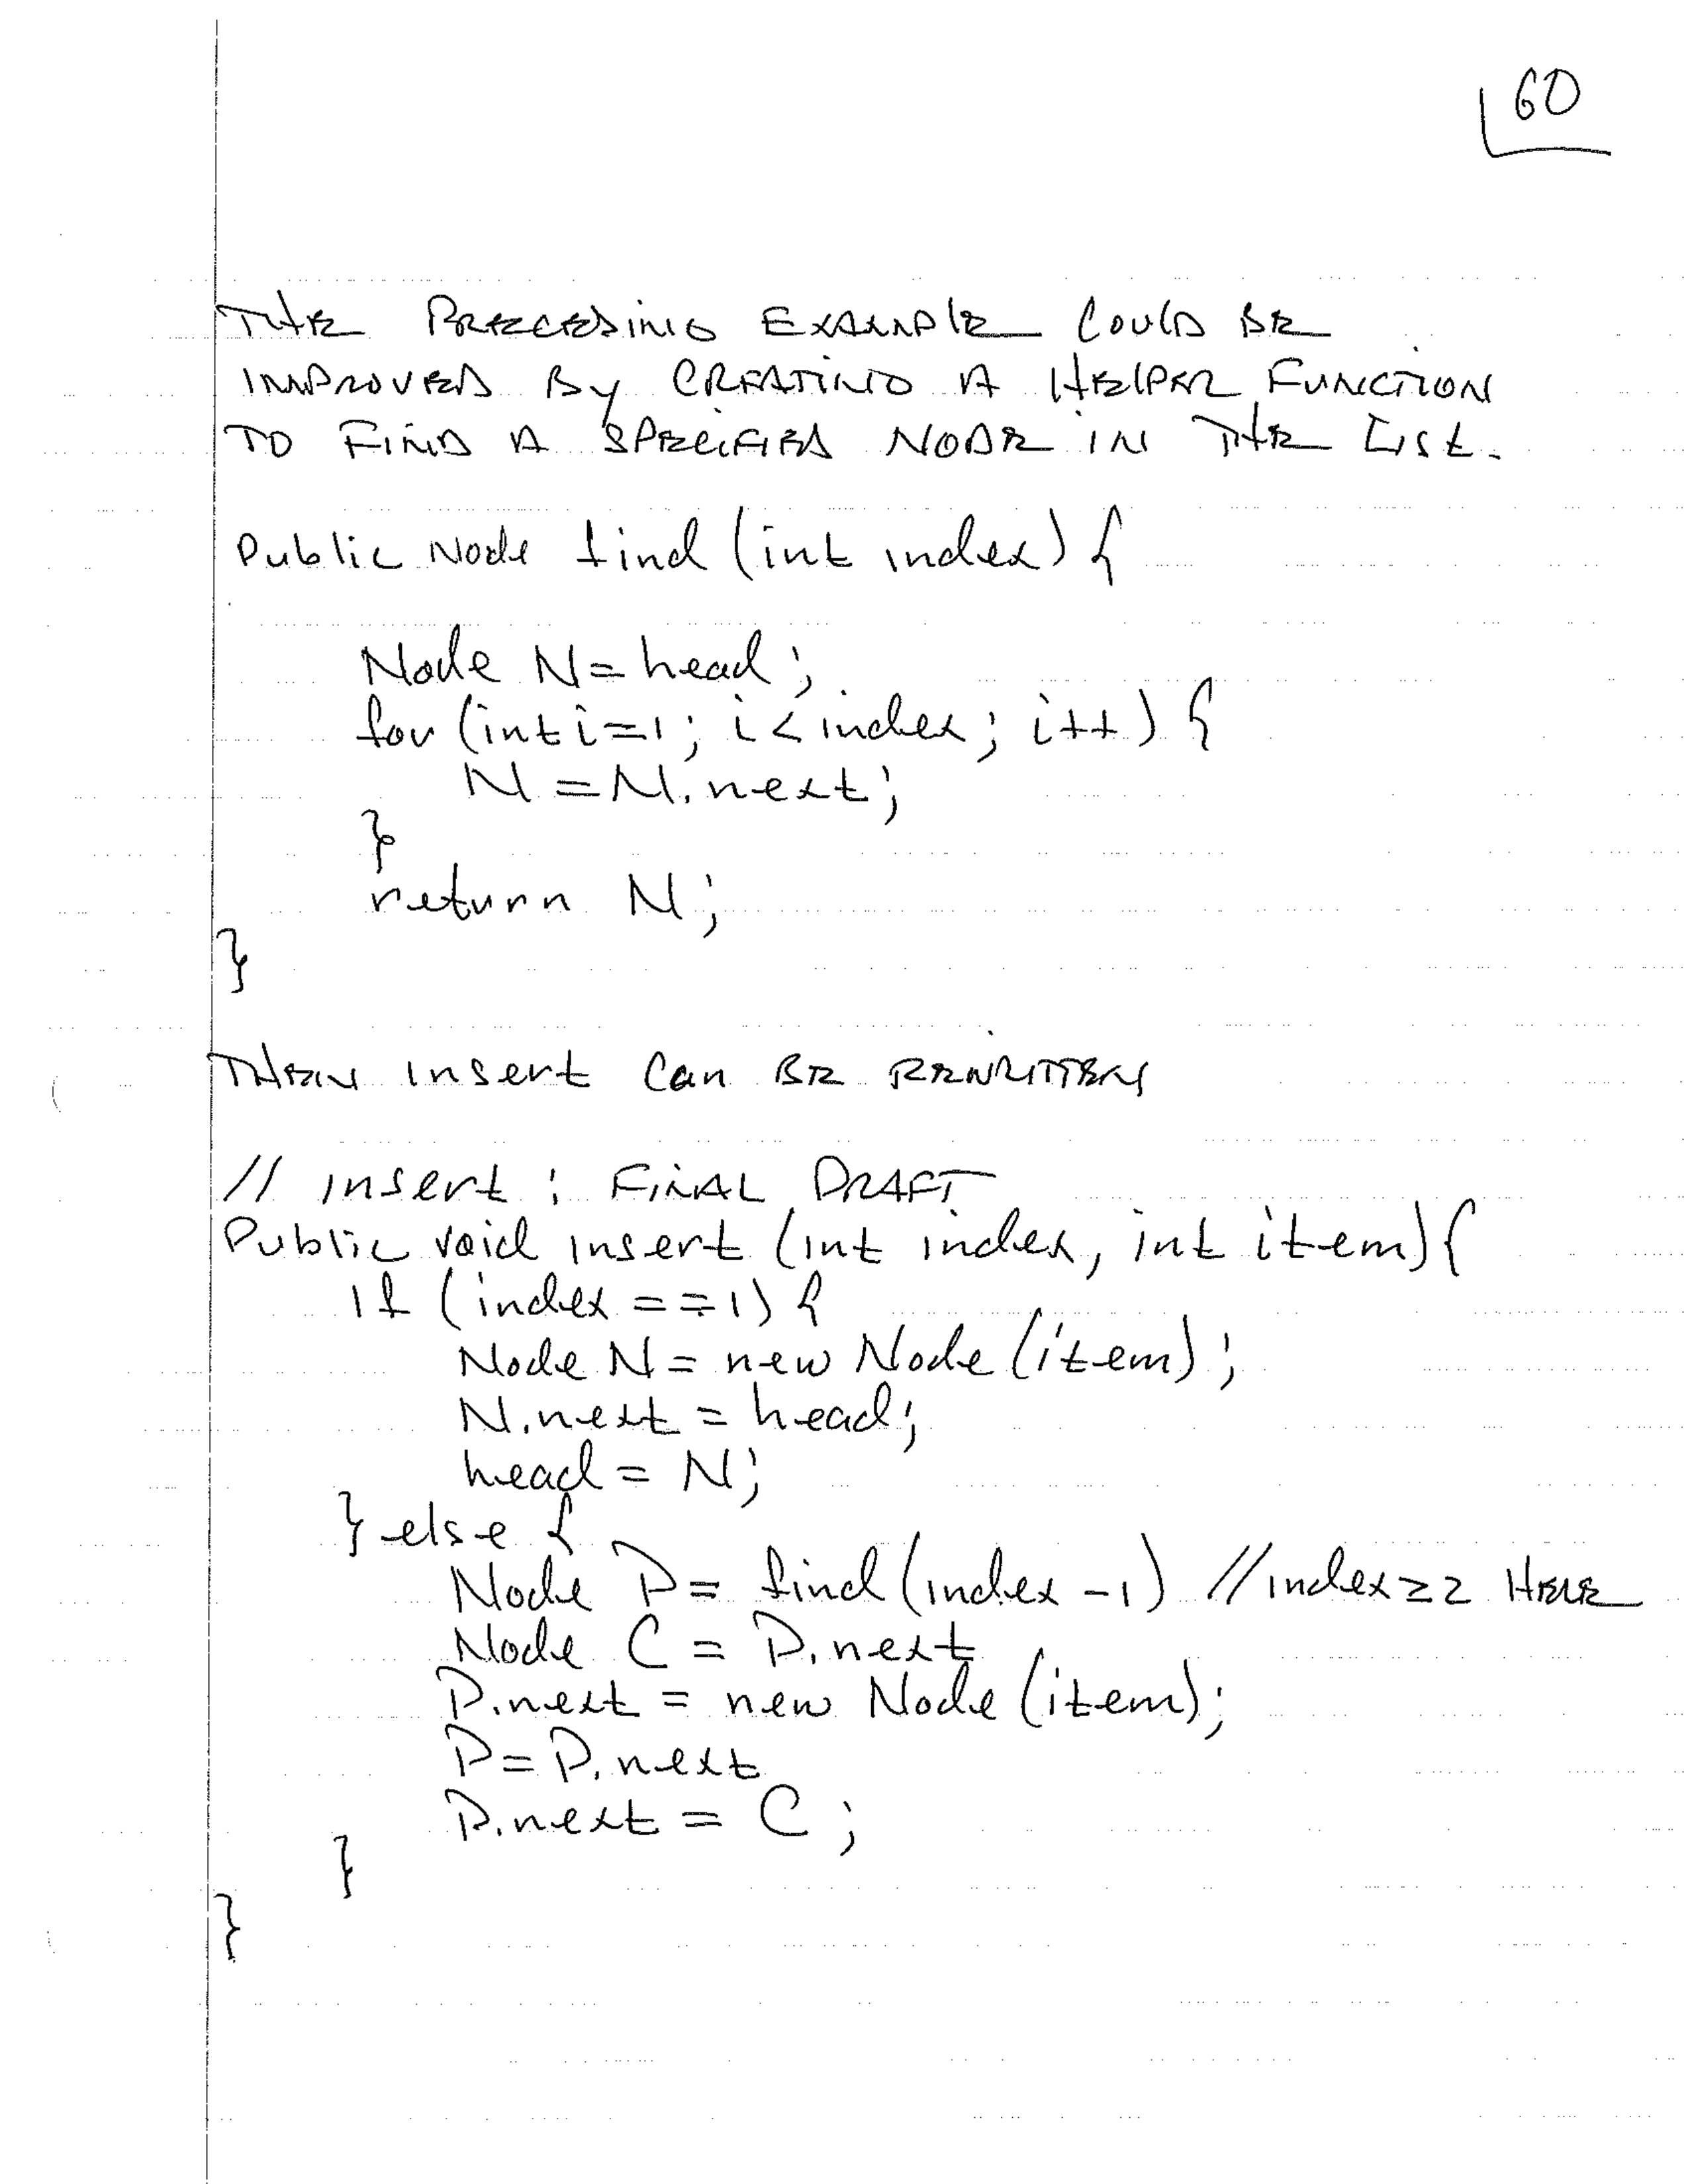 60
THE PRECEDING EXAMPLE COULD BE
IMPROVED BY CREATING A HELPER FUNCTION
TO FIND A SPECIFIED NODE IN THE LIST.
Public Node find (int index) {
Node N = head;
for (int i=1; i < index; i++) {
N = N.next;
}
return N;
}
THEN insert can BE REWRITTEN
// insert : FINAL DRAFT
Public void insert (int index, int item) {
if (index == 1) {
Node N = new Node (item);
N.next = head;
head = N;
} else {
Node P = find (index - 1) // index ≥ 2 HERE
Node C = P.next
P.next = new Node (item);
P = P.next
P.next = C;
}
}